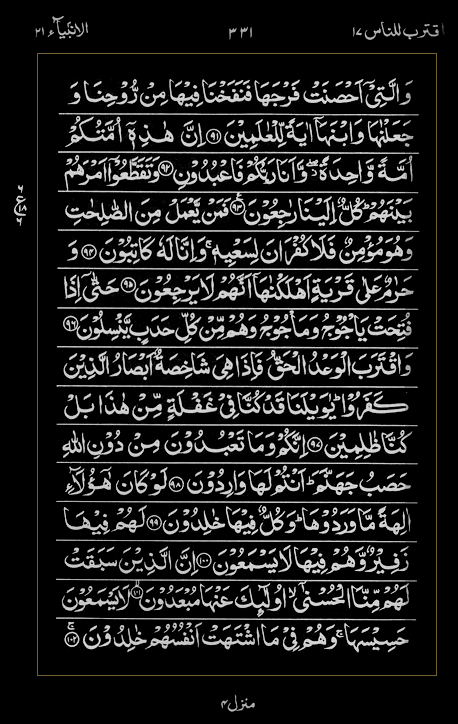 اقترب للناس ١٧
٣٣١
الانبیآء ٢١
وَالَّتِیْۤ اَحْصَنَتْ فَرْجَهَا فَنَفَخْنَا فِیْهَا مِنْ رُّوْحِنَا وَ
جَعَلْنٰهَا وَابْنَهَاۤ اٰیَةً لِّلْعٰلَمِیْنَ ﴿٩١﴾ اِنَّ هٰذِهٖۤ اُمَّتُكُمْ
اُمَّةً وَّاحِدَةً ۖ وَّاَنَا رَبُّكُمْ فَاعْبُدُوْنِ ﴿٩٢﴾ وَتَقَطَّعُوْۤا اَمْرَهُمْ
بَیْنَهُمْ ؕ كُلٌّ اِلَیْنَا رٰجِعُوْنَ ﴿٩٣﴾ فَمَنْ یَّعْمَلْ مِنَ الصّٰلِحٰتِ
وَهُوَ مُؤْمِنٌ فَلَا كُفْرَانَ لِسَعْیِهٖ ۚ وَاِنَّا لَهٗ كَاتِبُوْنَ ﴿٩٤﴾ وَ
حَرٰمٌ عَلٰی قَرْیَةٍ اَهْلَكْنٰهَاۤ اَنَّهُمْ لَا یَرْجِعُوْنَ ﴿٩٥﴾ حَتّٰۤی اِذَا
فُتِحَتْ یَاْجُوْجُ وَمَاْجُوْجُ وَهُمْ مِّنْ كُلِّ حَدَبٍ یَّنْسِلُوْنَ ﴿٩٦﴾
وَاقْتَرَبَ الْوَعْدُ الْحَقُّ فَاِذَا هِیَ شَاخِصَةٌ اَبْصَارُ الَّذِیْنَ
كَفَرُوْا ؕ یٰوَیْلَنَا قَدْ كُنَّا فِیْ غَفْلَةٍ مِّنْ هٰذَا بَلْ
كُنَّا ظٰلِمِیْنَ ﴿٩٧﴾ اِنَّكُمْ وَمَا تَعْبُدُوْنَ مِنْ دُوْنِ اللّٰهِ
حَصَبُ جَهَنَّمَ ؕ اَنْتُمْ لَهَا وَارِدُوْنَ ﴿٩٨﴾ لَوْ كَانَ هٰۤؤُلَآءِ
اٰلِهَةً مَّا وَرَدُوْهَا ؕ وَكُلٌّ فِیْهَا خٰلِدُوْنَ ﴿٩٩﴾ لَهُمْ فِیْهَا
زَفِیْرٌ وَّهُمْ فِیْهَا لَا یَسْمَعُوْنَ ﴿١٠٠﴾ اِنَّ الَّذِیْنَ سَبَقَتْ
لَهُمْ مِّنَّا الْحُسْنٰۤی ۙ اُولٰٓئِكَ عَنْهَا مُبْعَدُوْنَ ﴿١٠١﴾ لَا یَسْمَعُوْنَ
حَسِیْسَهَا ۚ وَهُمْ فِیْ مَا اشْتَهَتْ اَنْفُسُهُمْ خٰلِدُوْنَ ﴿١٠٢﴾
منزل ٤